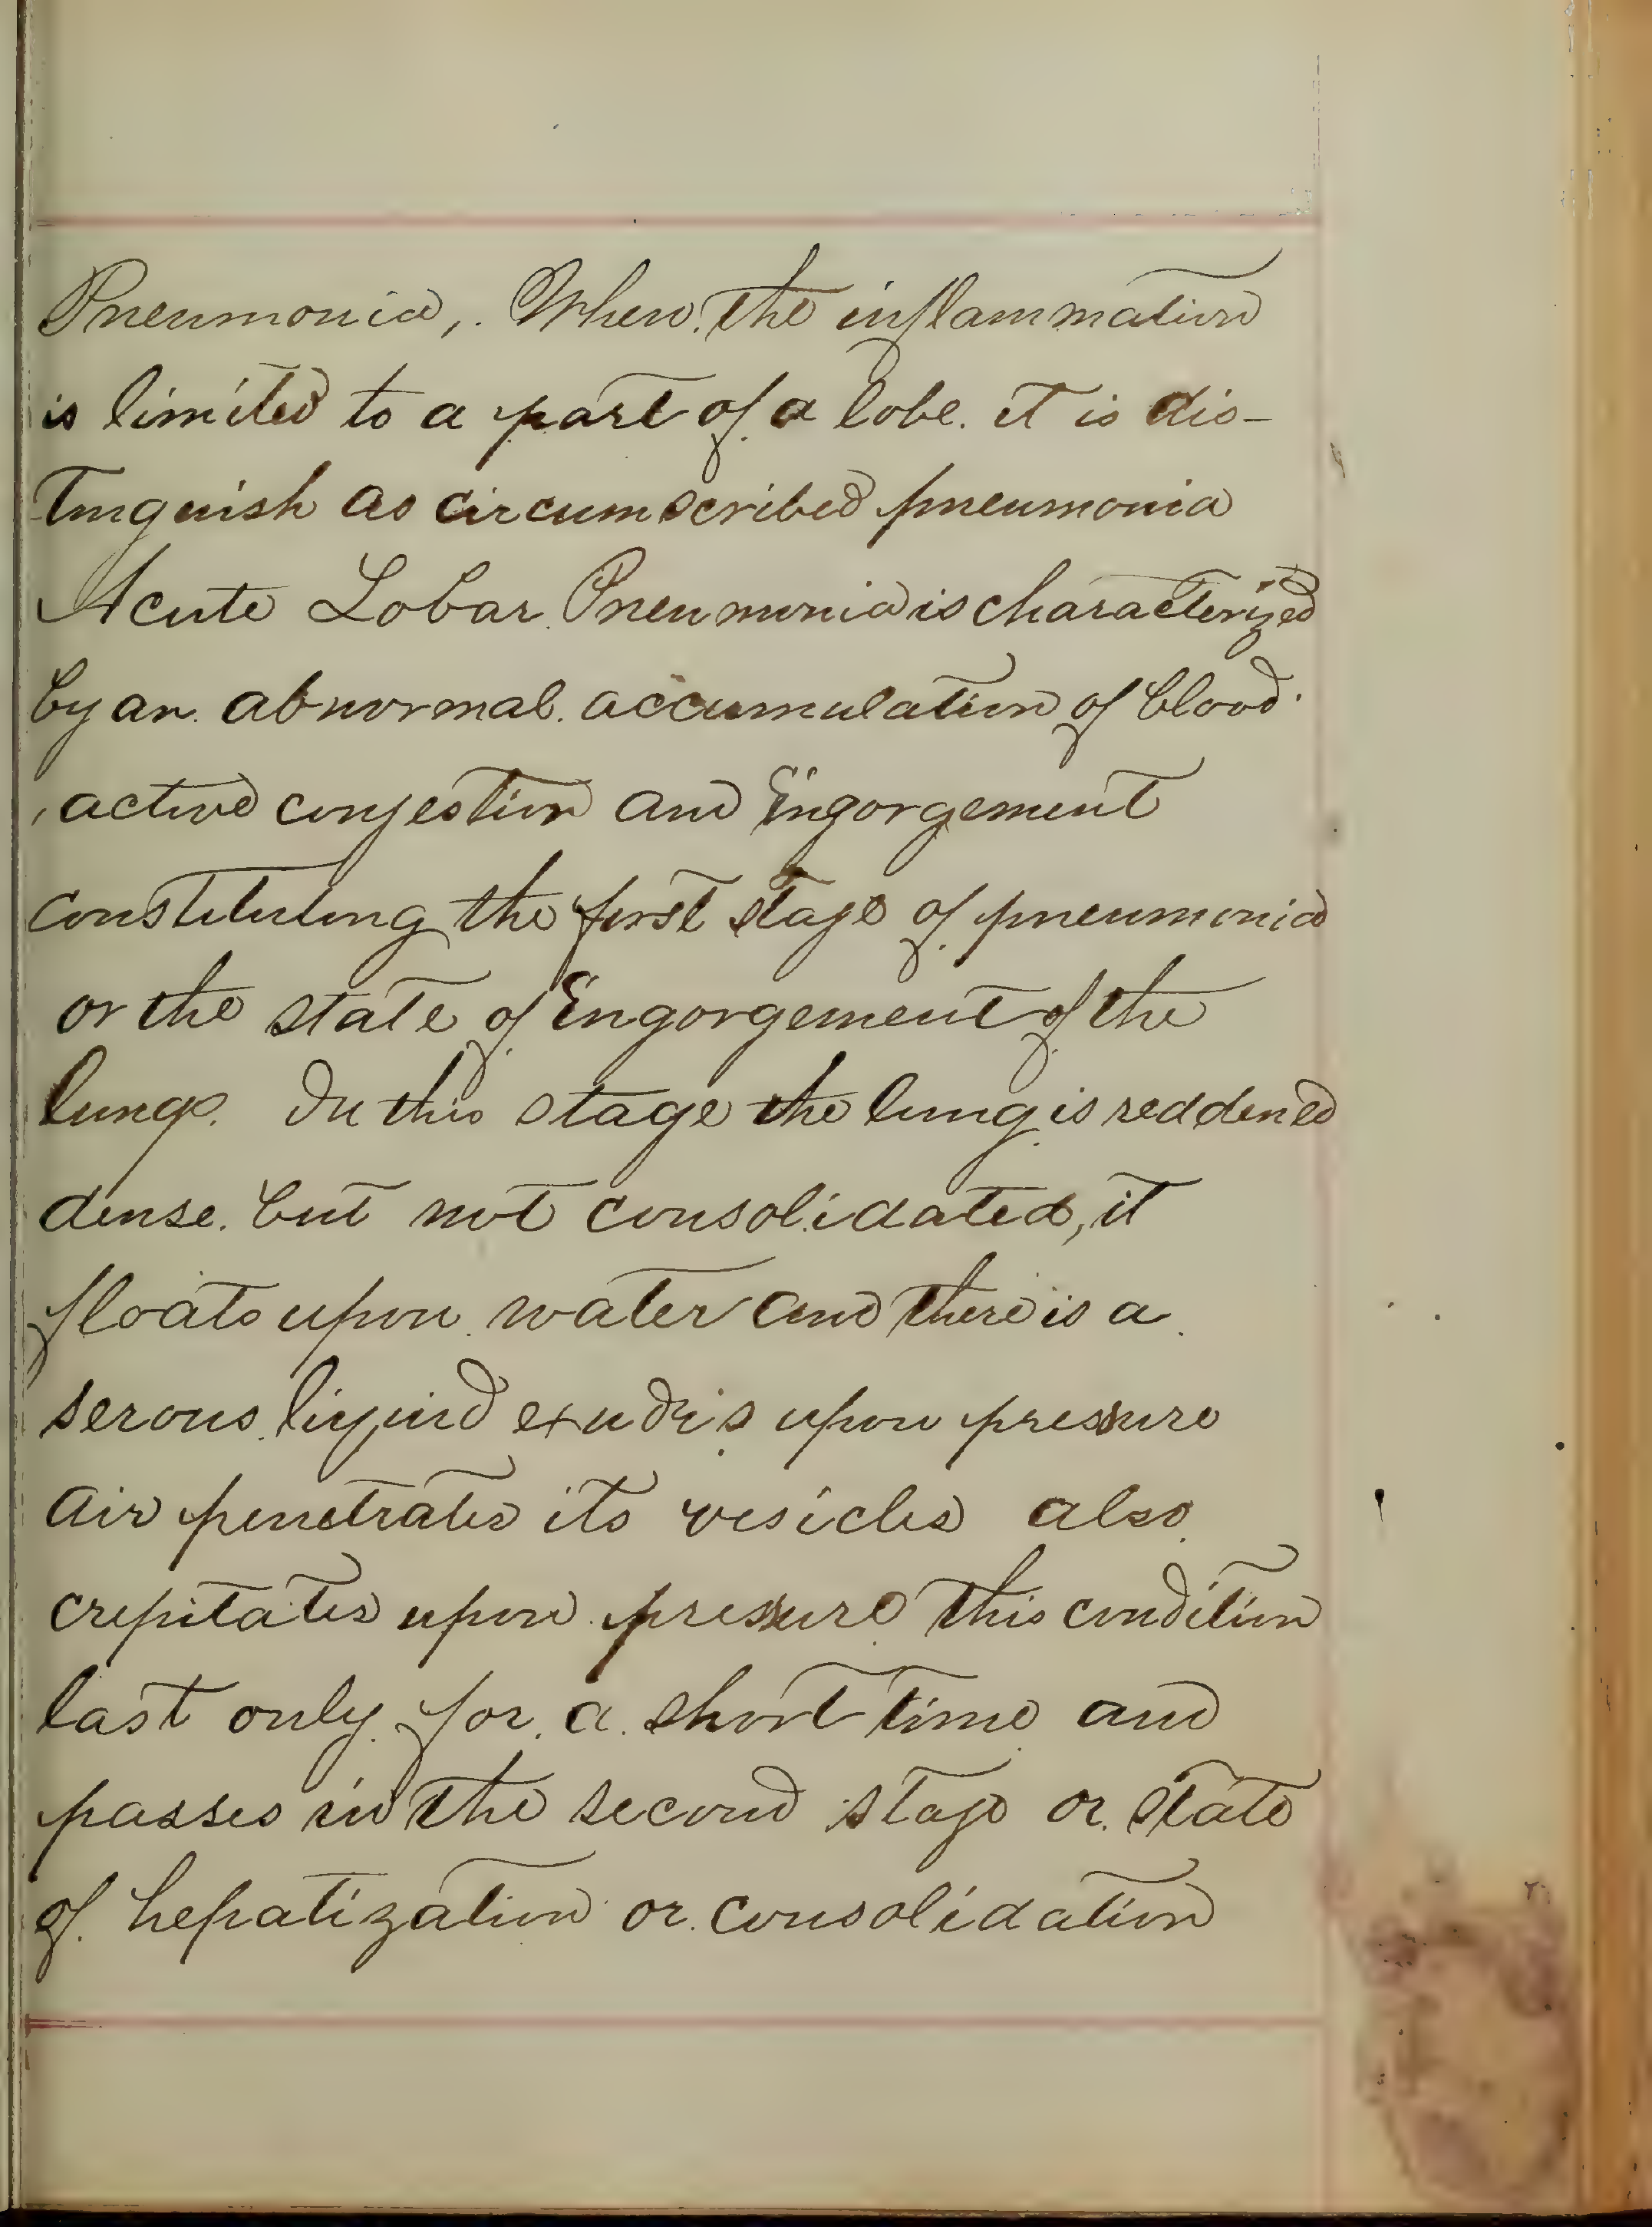 Pneumonia, . When. the inflammation
is limited to a part of a lobe. it is dis-
tinguish as circumscribed pneumonia
Acute Lobar. Pneumonia is characterized
by an. abnormal. accumulation of blood.
, active conjestion and Engorgement
constituting the first stage of pneumonia
or the state of Engorgement of the
lungs. In this stage the lung is reddened
dense. but not consolidated, it
floats upon. water and there is a.
serous. liquid exudes upon pressure
Air penetrates its vesicles also.
crepitates upon pressure. this condition
last only. for. a. short time and
passes in the second stage or. state
of. hepatization or. consolidation